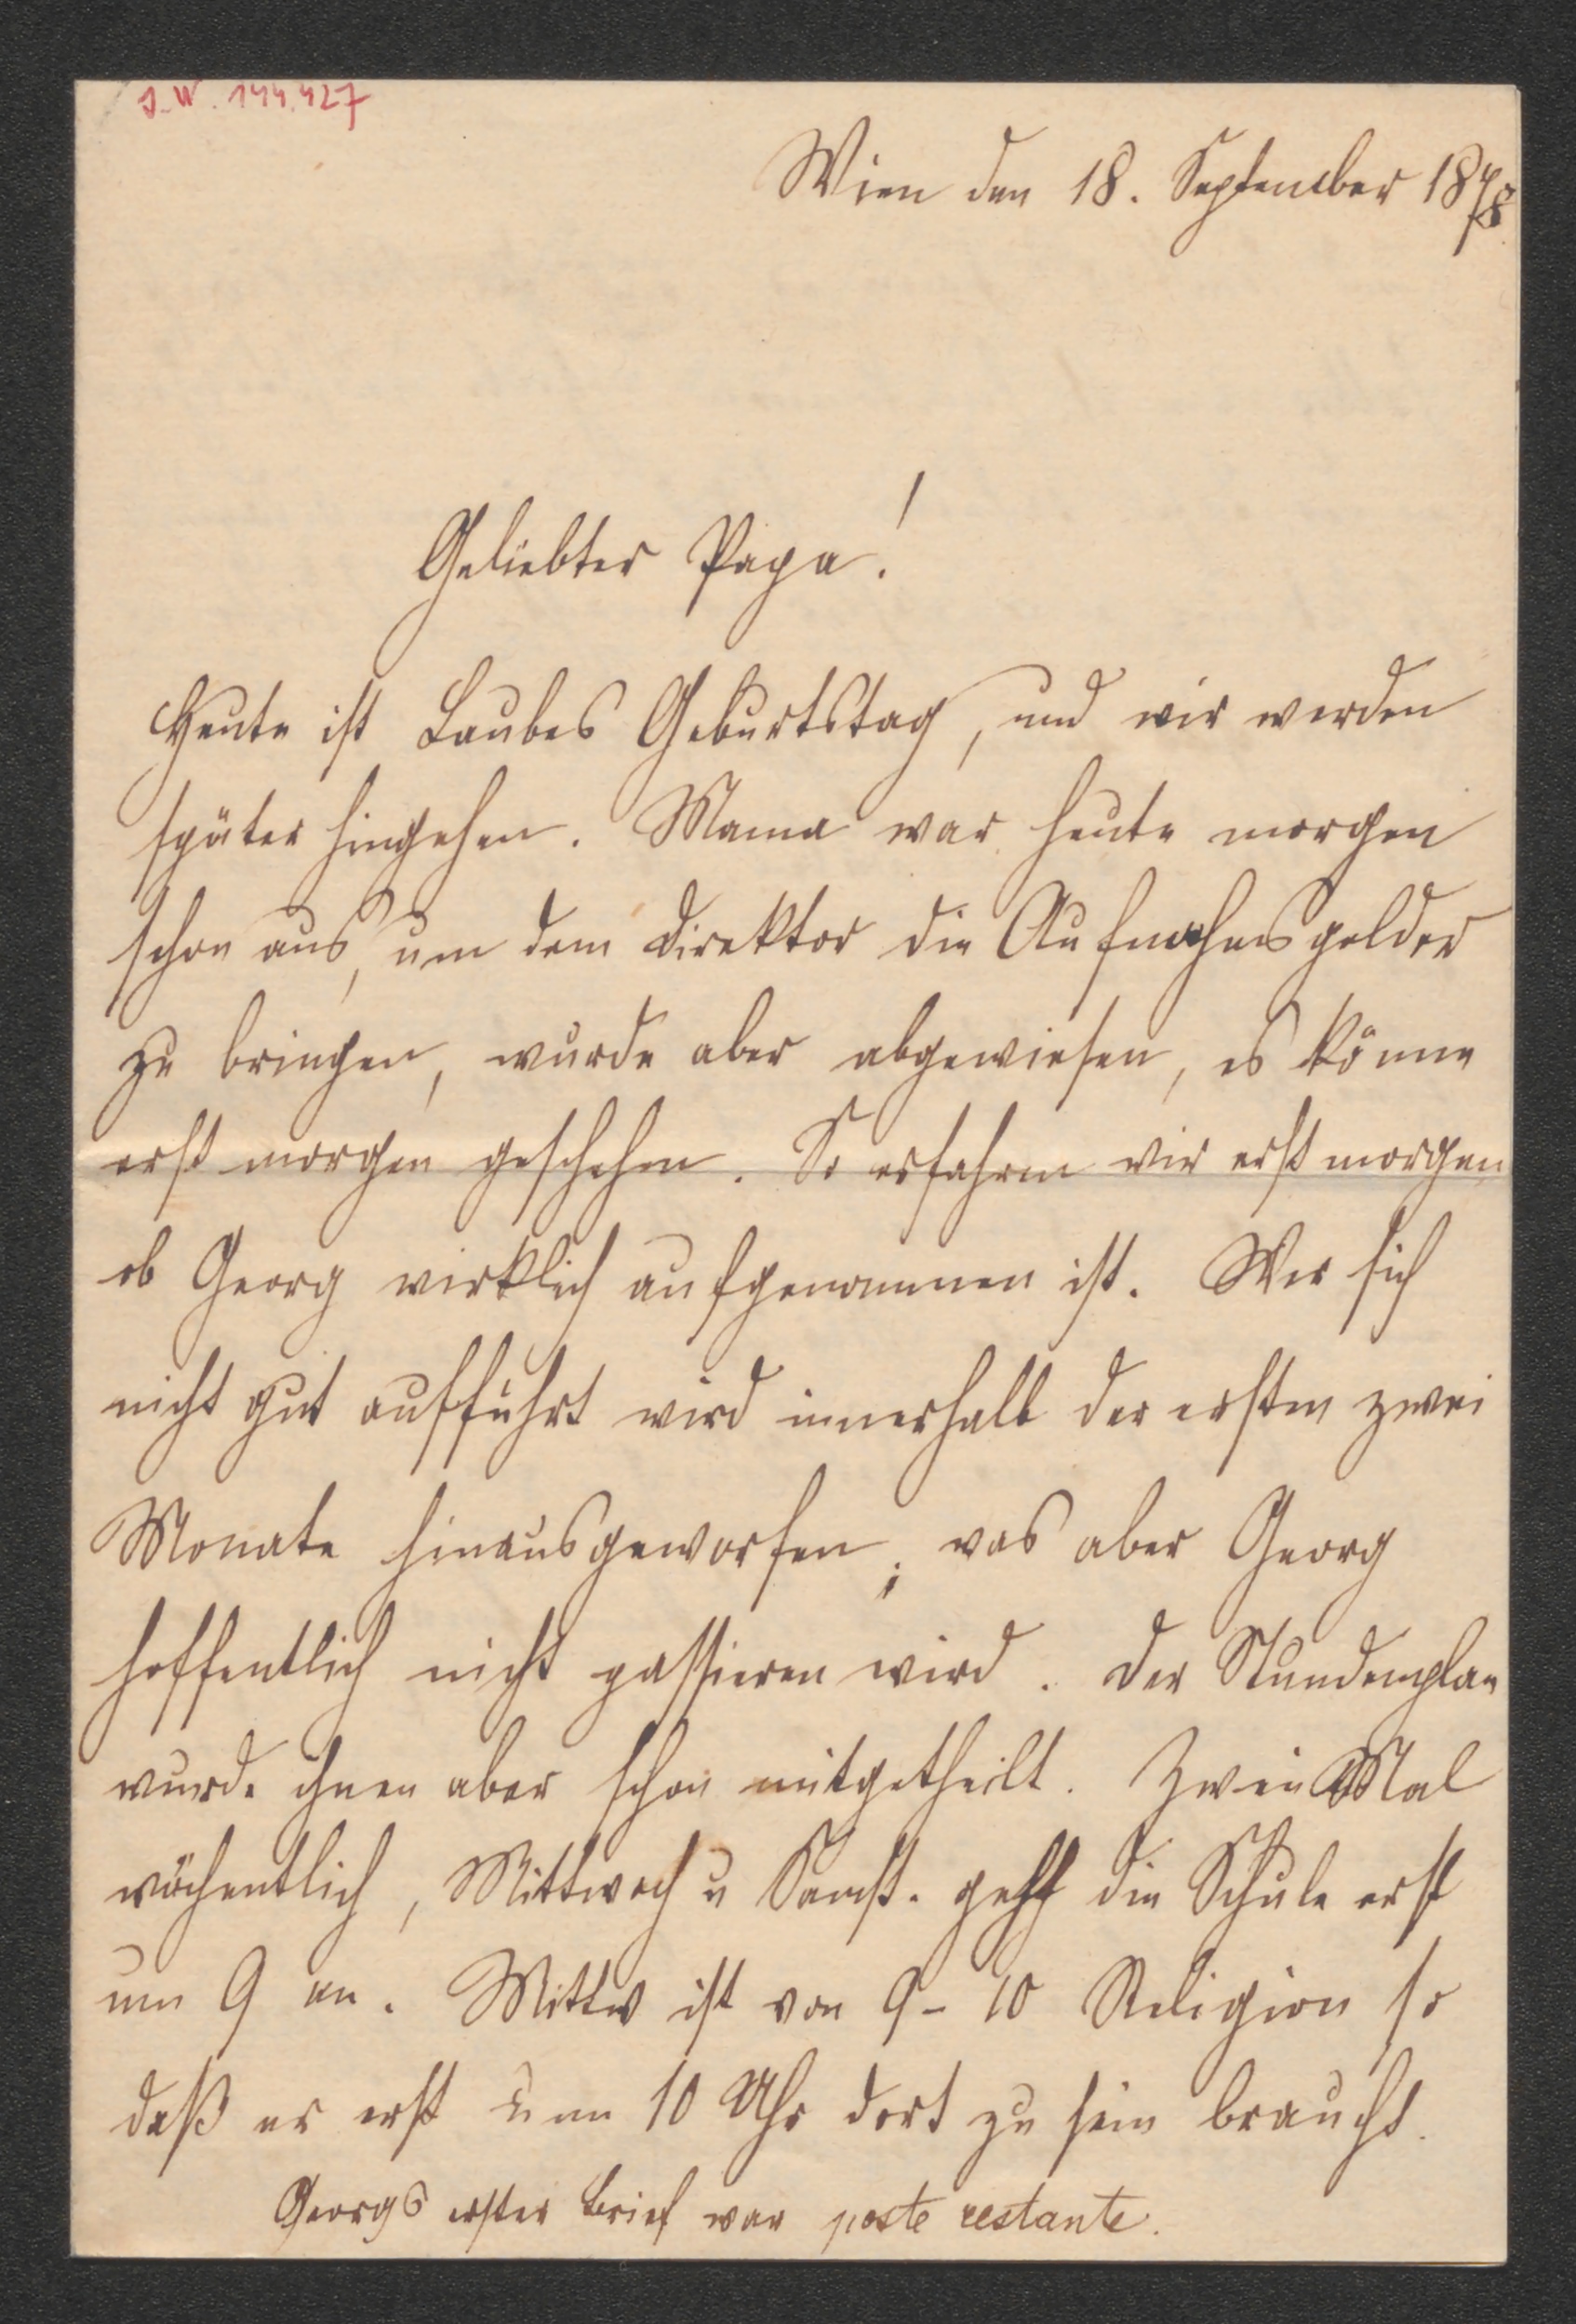 J. N. 144.427
Wien den 18. September 1878
Geliebter Papa!
Heute ist Laubes Geburtstag, und wir werden
später hingehen. Mama war heute morgen
schon aus, um dem Direktor die Aufnahmsgelder
zu bringen, wurde aber abgewiesen, es könne
erst morgen geschehen. So erfahren wir erst morgen
ob Georg wirklich aufgenommen ist. Wer sich
nicht gut aufführt wird innerhalb der ersten zwei
Monate hinausgeworfen; was aber Georg
hoffentlich nicht passieren wird. Der Stundenplan
wurde ihnen aber schon mitgetheilt. Zwei Mal
wöchentlich, Mittwoch u Samst. geht die Schule erst
um 9 an. Mittw ist von 9-10 Religion so
daß er erst um 10 Uhr dort zu sein braucht.
Georgs erster Brief war poste restante.